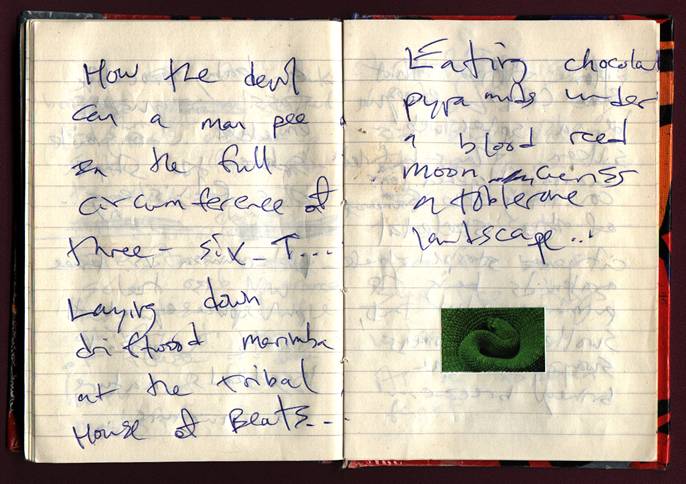 How the devil
can a man pee
in the full
circumference of
three-six-T...
Laying down
driftwood marimba
at the tribal
House of Beats...
Eating chocolat
pyramids under
a blood reed
moon across
a toblerone
landscape...